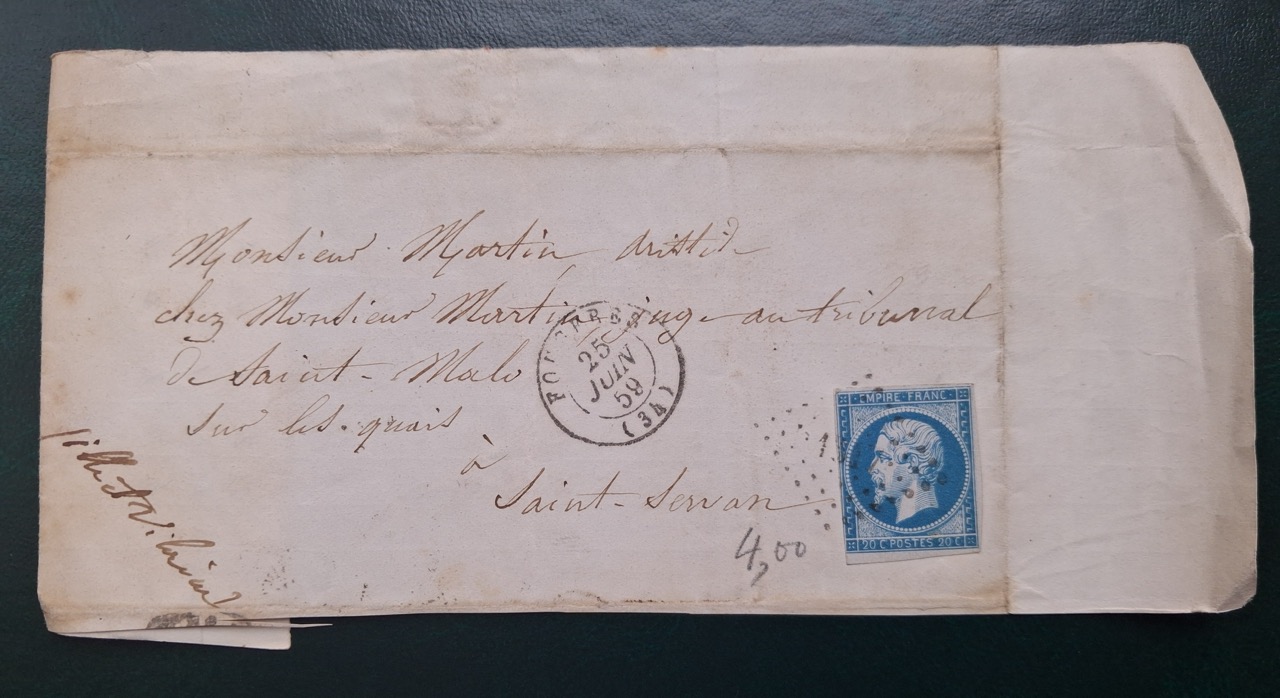 Monsieur Martin Aristide
chez Monsieur Martin juge au tribunal
de Saint-Malo
sur les quais
à
Saint-Servan
FOUGERES
25
JUIN
59
(34)
EMPIRE FRANC
20 C POSTES 20 C
4,00